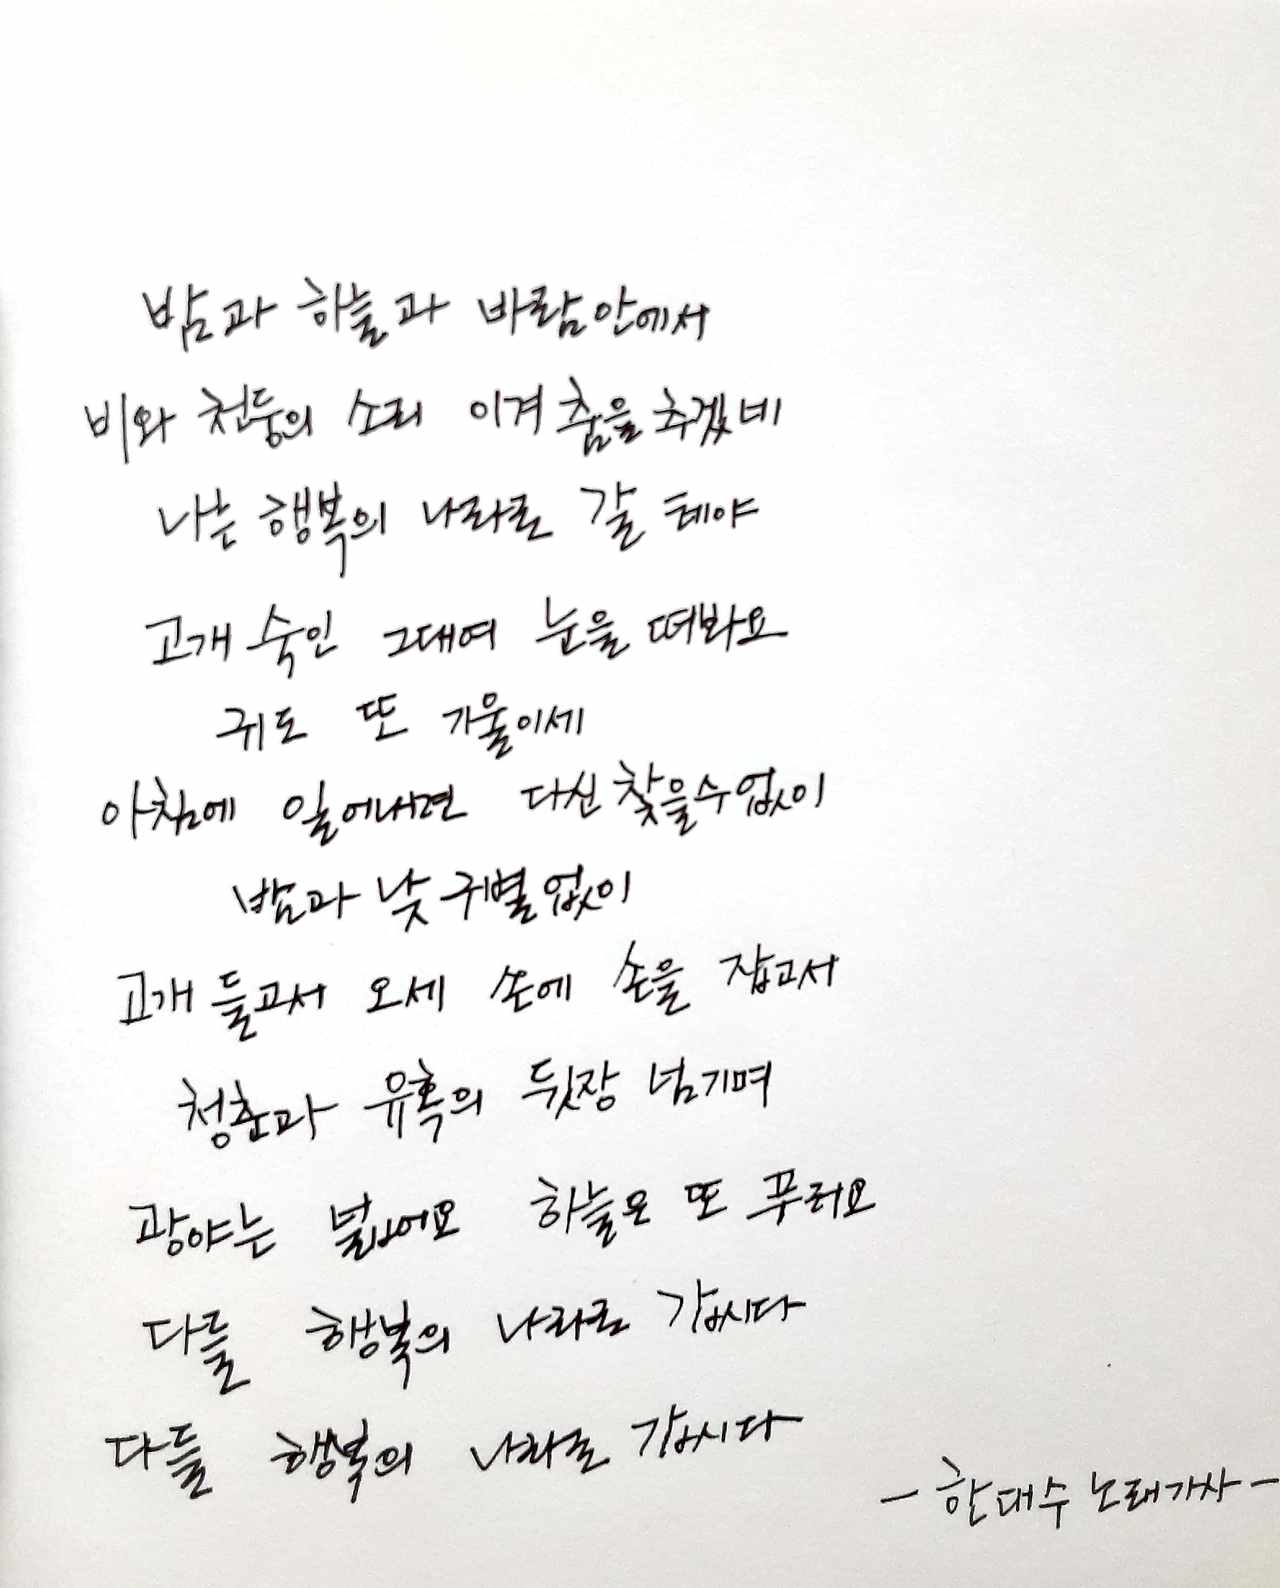 밤과 하늘과 바람안에서
비와 천둥의 소리 이겨 춤을 추겠네
나는 행복의 나라로 갈 테야
고개 숙인 그대여 눈을 떠봐요
귀도 또 기울이세
아침에 일어나면 다신 찾을수없이
밤과 낮 구별없이
고개 들고서 오세 손에 손을 잡고서
청춘과 유혹의 뒷장 넘기며
광야는 넓어요 하늘은 또 푸러요
다들 행복의 나라로 갑시다
다들 행복의 나라로 갑시다
- 한대수 노래가사 -